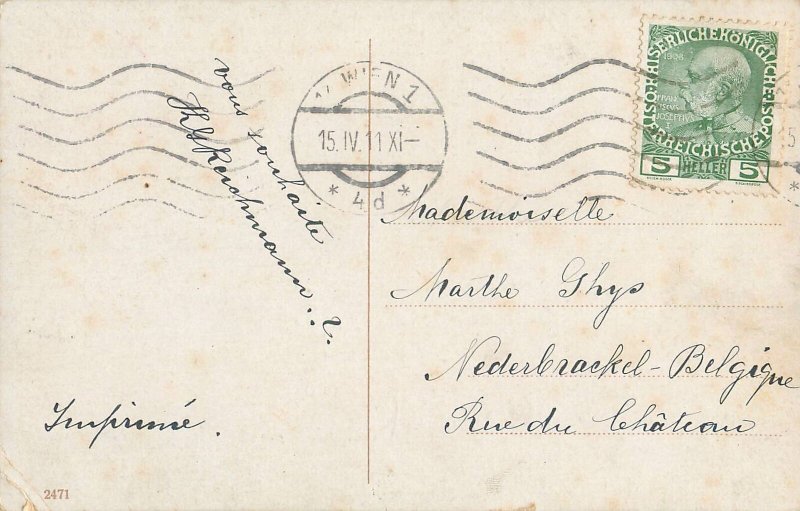 vous souhaite
Imprimé.
2471
WIEN 1
15.IV.11 XI-
* 4d *
KAISERLICHE KÖNIGLICHE
ÖSTERREICHISCHE POST
1908
FRANZ
JOSEPHVS
5 HELLER 5
Mademoiselle
Marthe Ghys
Nederbrackel - Belgique
Rue du Château